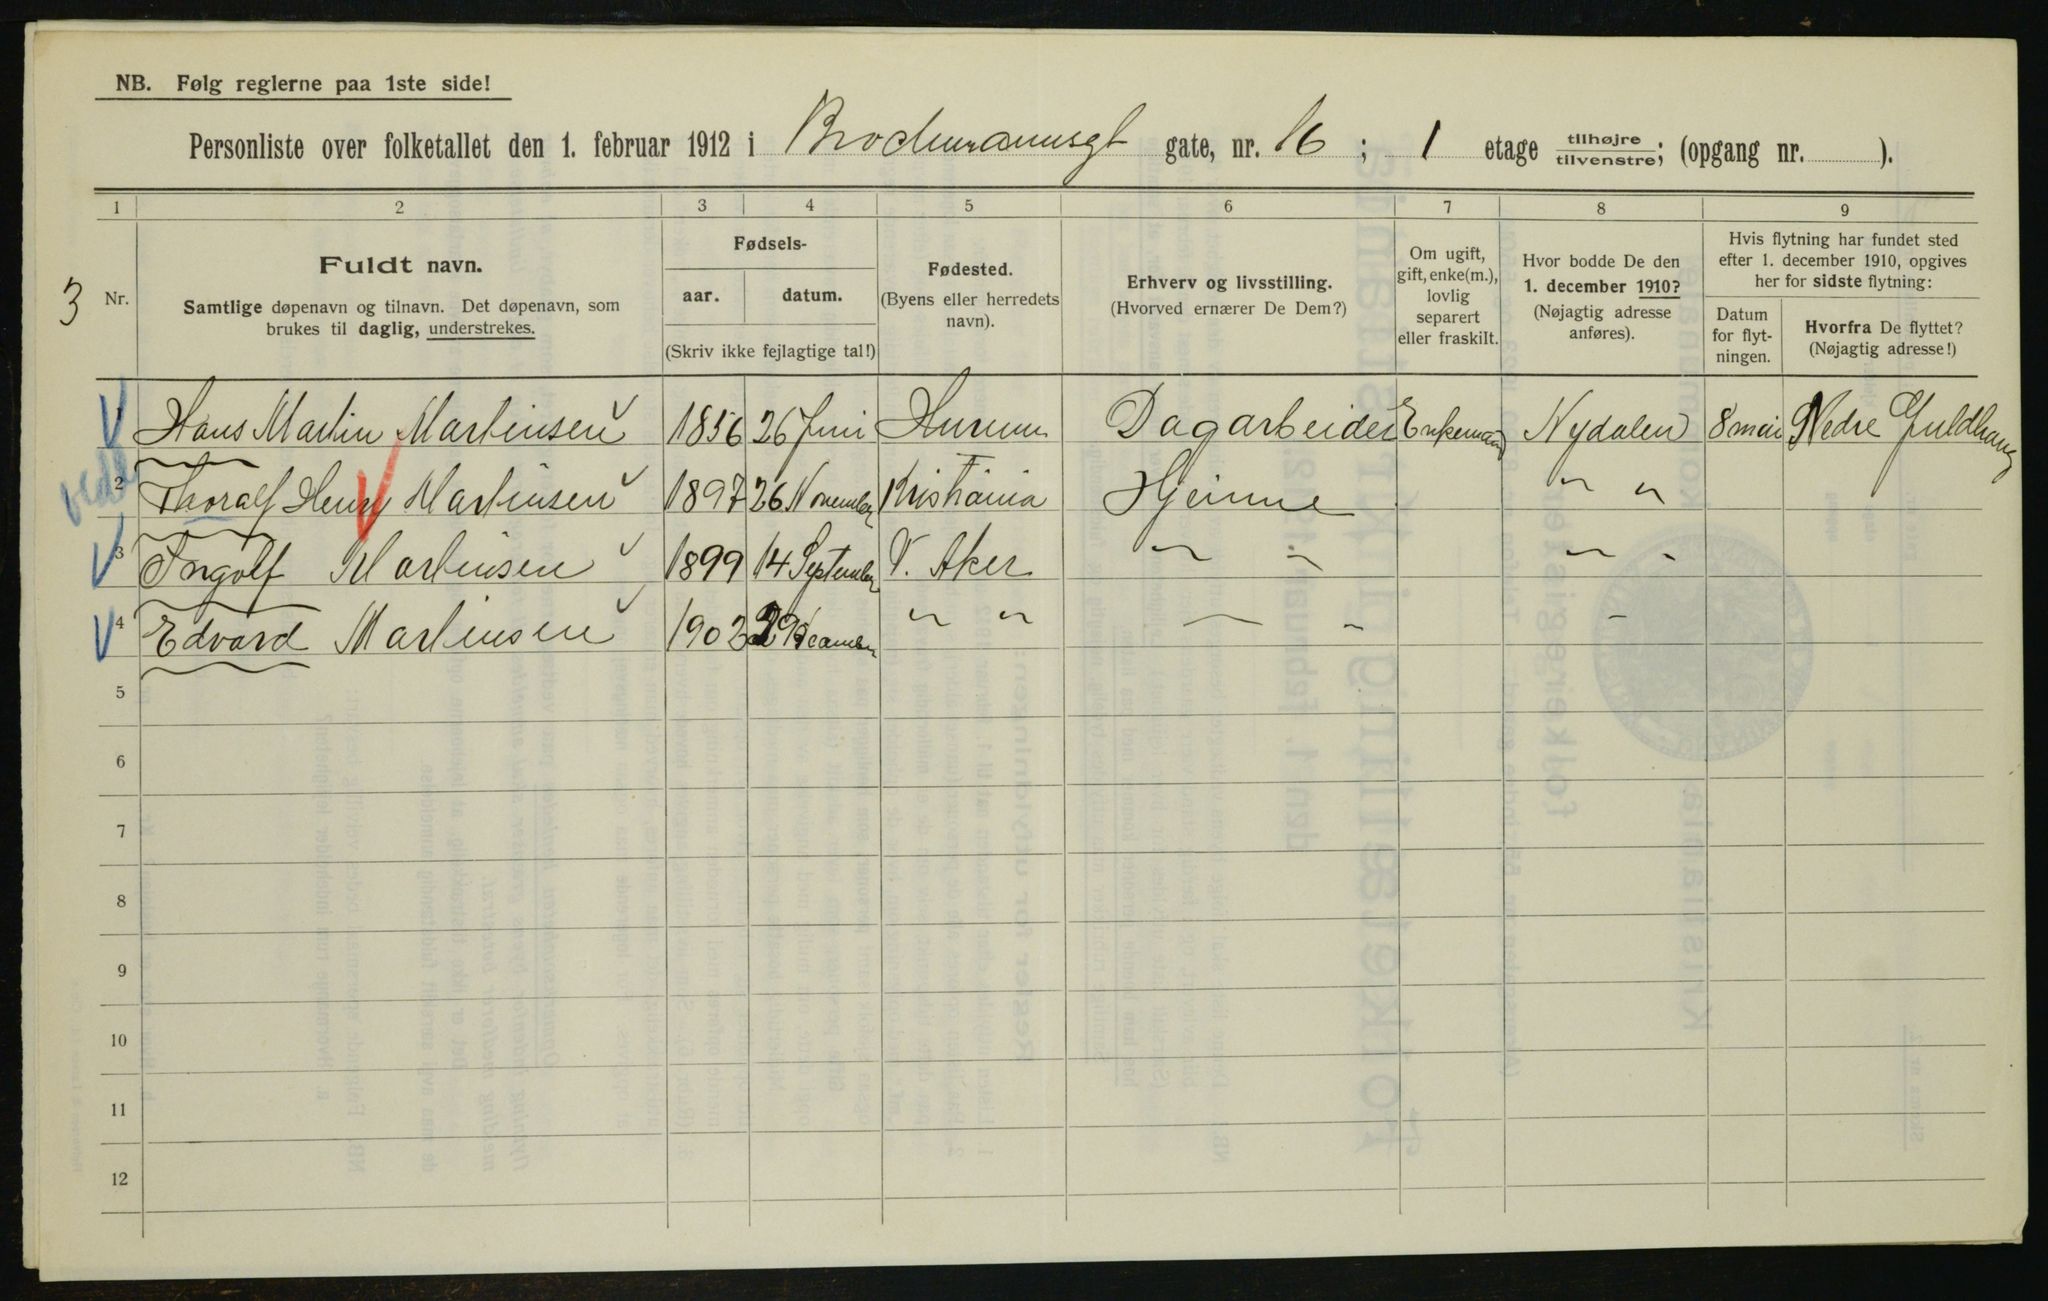 NB. Følg reglerne paa 1ste side!
Personliste over folketallet den 1. februar 1912 i Brochmannsgt gate, nr. 16; 1 etage tilhøjre/tilvenstre; (opgang nr. ).
1 2 3 4 5 6 7 8 9
3
Nr.
Fuldt navn.
Samtlige døpenavn og tilnavn. Det døpenavn, som
brukes til daglig, understrekes.
Fødsels-
aar. datum.
(Skriv ikke fejlagtige tal!)
Fødested.
(Byens eller herredets
navn).
Erhverv og livsstilling.
(Hvorved ernærer De Dem?)
Om ugift,
gift, enke(m.),
lovlig
separert
eller fraskilt.
Hvor bodde De den
1. december 1910?
(Nøjagtig adresse
anføres).
Hvis flytning har fundet sted
efter 1. december 1910, opgives
her for sidste flytning:
Datum
for flyt-
ningen.
Hvorfra De flyttet?
(Nøjagtig adresse!)
1 Hans Martin Martinsen 1856 26 Juni Hurum Dagarbeider Enkemand Nydalen 8 mai Nedre
2 Thoralf Henr Martinsen 1897 26 November Kristiania Hjemme " "
3 Ingolf Martinsen 1899 14 September V. Aker " " " "
4 Edvard Martinsen 1902 29 " " " " "
5
6
7
8
9
10
11
12